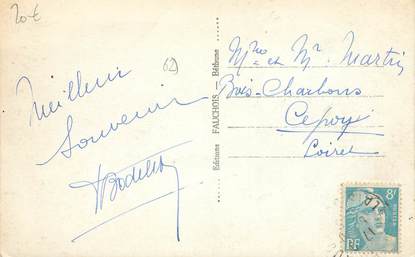 20€
Meilleur
Souvenir
62
Editions FAUCHOIS - Béthune
Mme et Mr. Martin
Bois-Charbons
Cepoy
Loiret
8F
RF